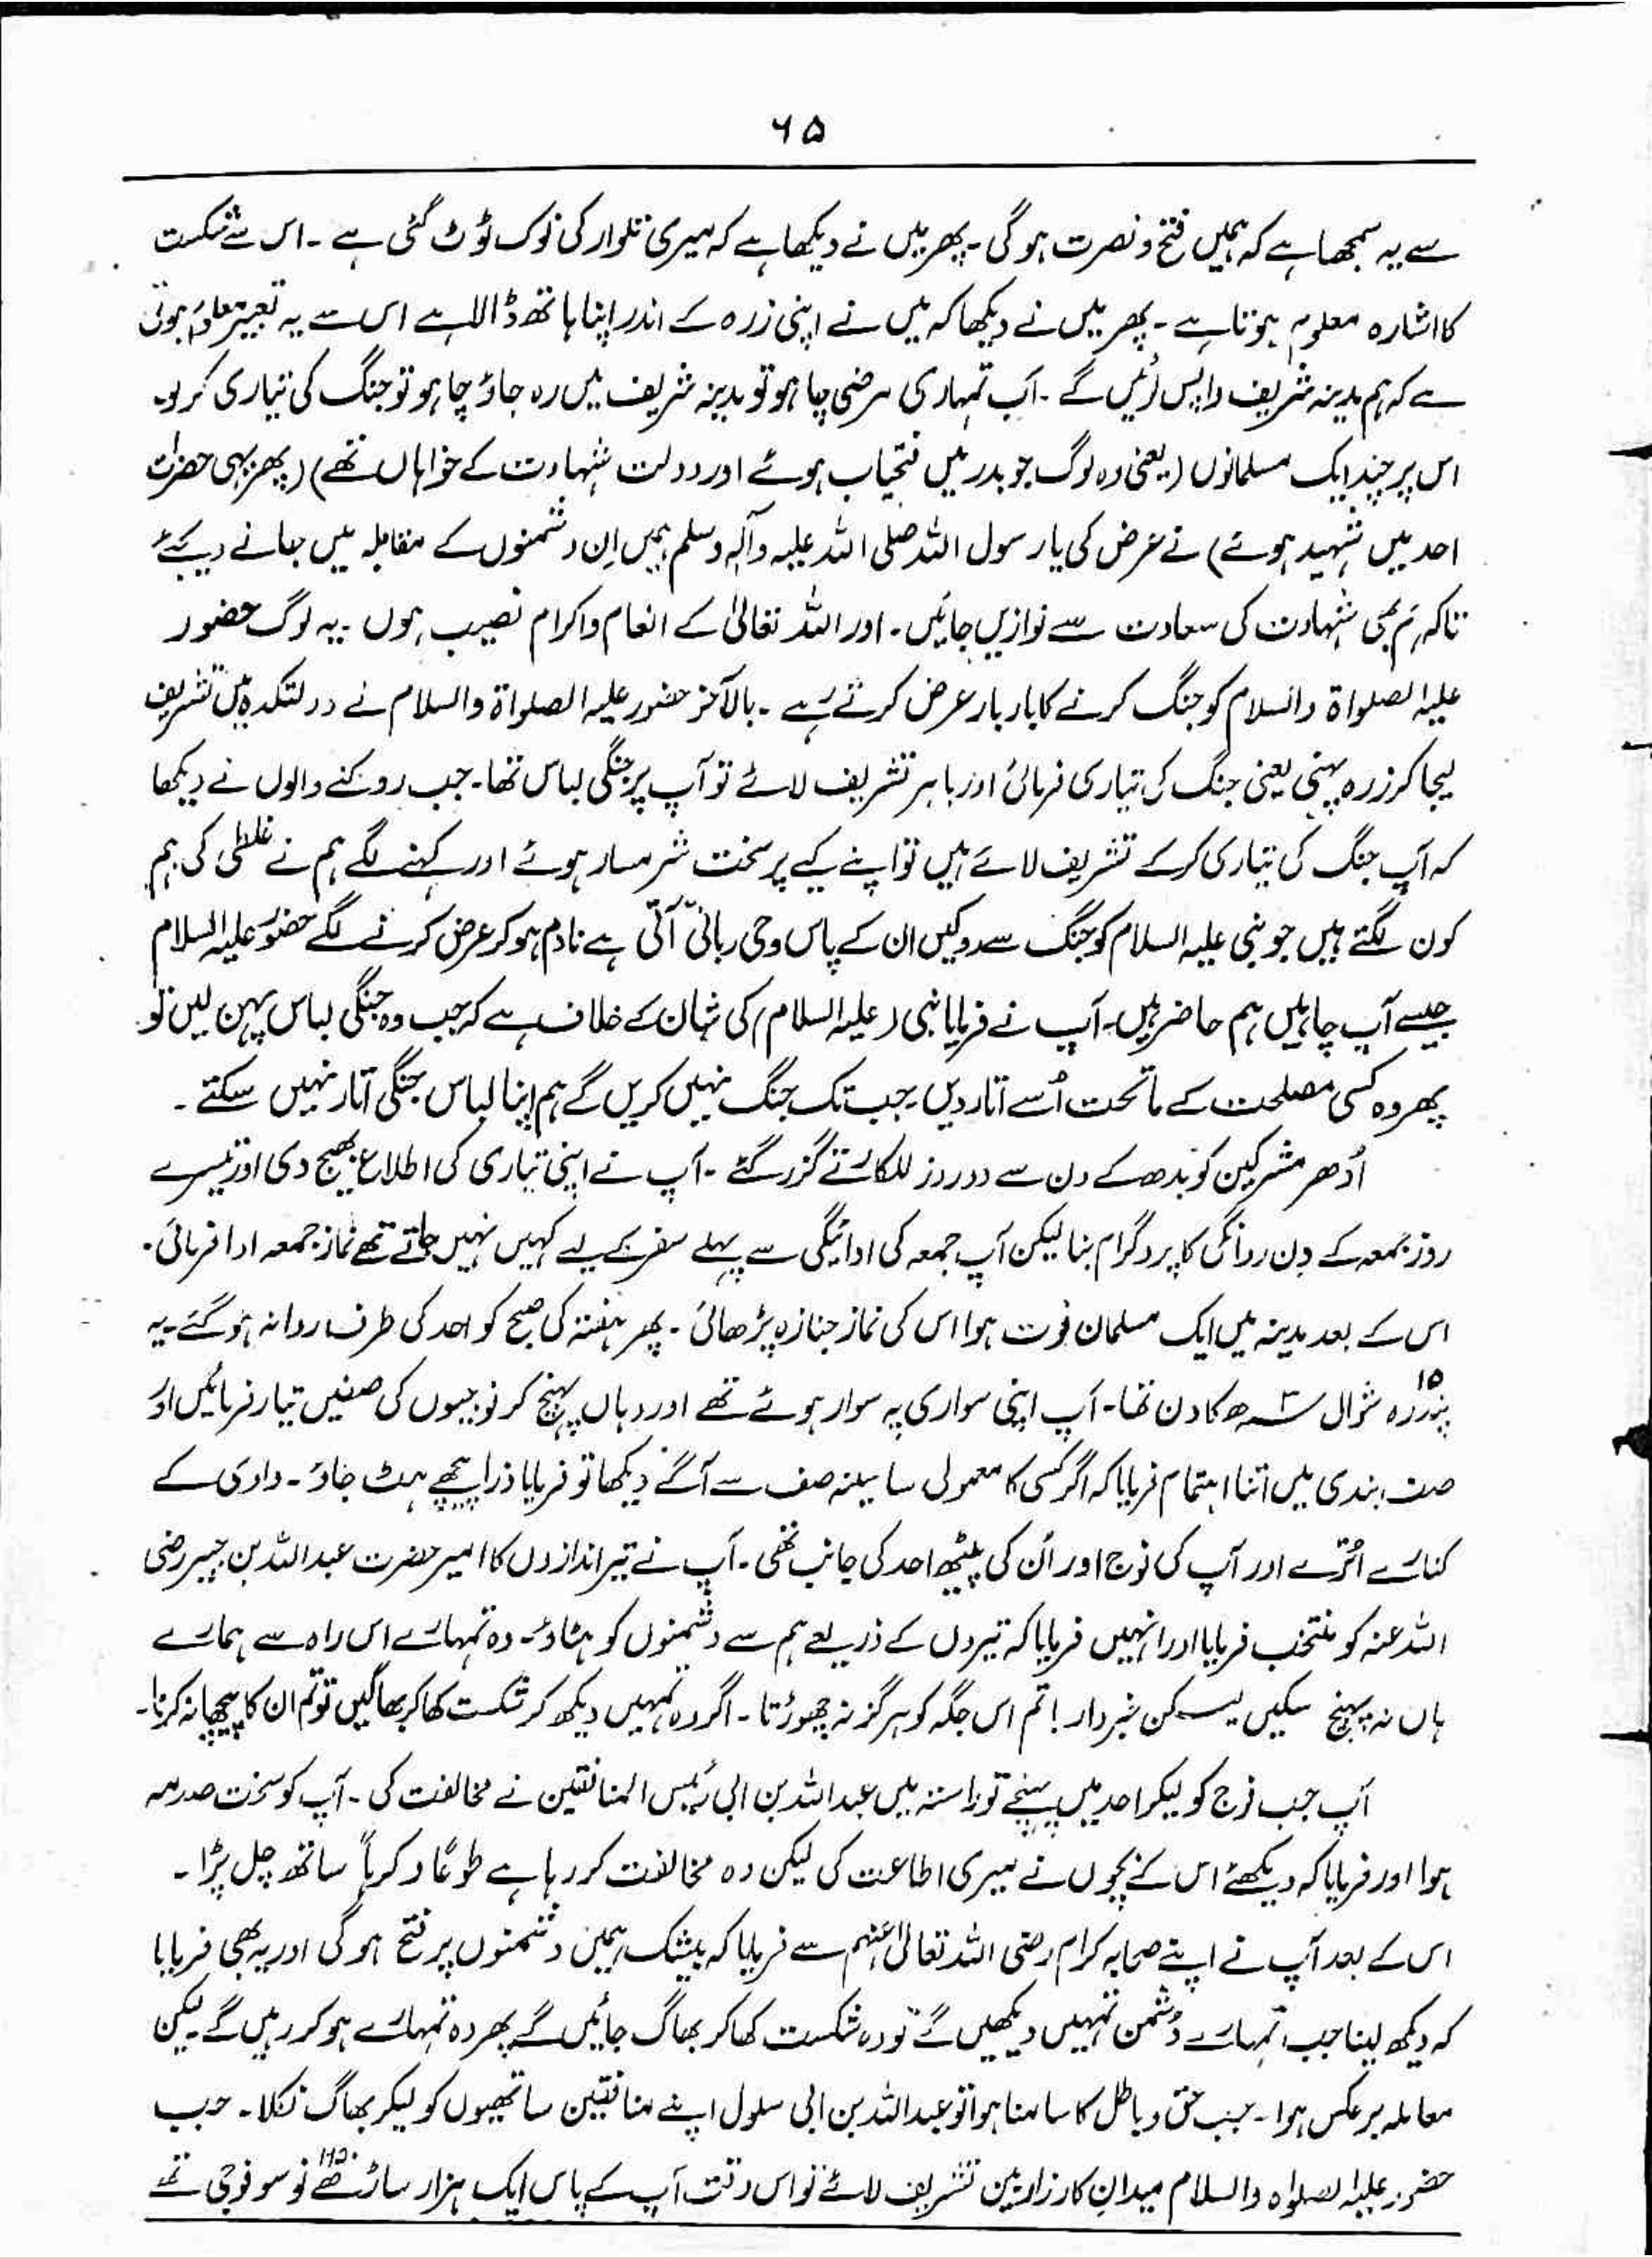 ۶۵
سے یہ سمجھا ہے کہ ہمیں فتح و نصرت ہو گی ۔ پھر میں نے دیکھا ہے کہ میری تلوار کی نوک ٹوٹ گئی ہے ۔ اس سے شکست
کا اشارہ معلوم ہوتا ہے ۔ پھر میں نے دیکھا کہ میں نے اپنی زرہ کے اندر اپنا ہاتھ ڈالا ہے اس سے یہ تعبیر معلوم ہوتی
ہے کہ ہم مدینہ شریف واپس لوٹیں گے ۔ اب تمہاری مرضی چاہو تو مدینہ شریف میں رہ جاؤ چاہو تو جنگ کی تیاری کر لو۔
اس پر چند ایک مسلمانوں (یعنی وہ لوگ جو بدر میں فتحیاب ہوئے اور دولت شہادت کے خواہاں تھے) (پھر یہی حضرات
احد میں شہید ہوئے) نے عرض کی یا رسول اللہ صلی اللہ علیہ وآلہ وسلم ہمیں اِن دشمنوں کے مقابلہ میں جانے دیجئے
تاکہ ہم بھی شہادت کی سعادت سے نوازیں جائیں ۔ اور اللہ تعالیٰ کے انعام واکرام نصیب ہوں ۔ یہ لوگ حضور
علیہ الصلواۃ والسلام کو جنگ کرنے کا بار بار عرض کرتے رہے ۔ بالآخر حضور علیہ الصلواۃ والسلام نے دولتکدہ میں تشریف
لیجا کر زرہ پہنی یعنی جنگ کی تیاری فرمائی اور باہر تشریف لائے تو آپ پر جنگی لباس تھا۔ جب روکنے والوں نے دیکھا
کہ آپ جنگ کی تیاری کر کے تشریف لائے ہیں تو اپنے کیے پر سخت شرمسار ہوئے اور کہنے لگے ہم نے غلطی کی ہم
کون لگتے ہیں جو نبی علیہ السلام کو جنگ سے روکیں ان کے پاس وحی ربانی آتی ہے نادم ہو کر عرض کرنے لگے حضور علیہ السلام
جیسے آپ چاہیں ہم حاضر ہیں۔ آپ نے فرمایا نبی (علیہ السلام) کی شان کے خلاف ہے کہ جب وہ جنگی لباس پہن لیں تو
پھر وہ کسی مصلحت کے ماتحت اُسے اتار دیں ۔ جب تک جنگ نہیں کریں گے ہم اپنا لباس جنگی اتار نہیں سکتے ۔
اُدھر مشرکین کو بدھ کے دن سے دو روز للکارتے گزر گئے ۔ آپ نے اپنی تیاری کی اطلاع بھیج دی اور تیسرے
روز جمعہ کے دِن روانگی کا پروگرام بنا لیکن آپ جمعہ کی ادائیگی سے پہلے سفر کے لیے کہیں نہیں جاتے تھے نماز جمعہ ادا فرمائی۔
اس کے بعد مدینہ میں ایک مسلمان فوت ہوا اس کی نماز جنازہ پڑھائی ۔ پھر ہفتہ کی صبح کو احد کی طرف روانہ ہو گئے ۔ یہ
پندرہ ۱۵ شوال ۳ھ کا دن تھا ۔ آپ اپنی سواری پہ سوار ہوئے تھے اور وہاں پہنچ کر فوجیوں کی صفیں تیار فرمائیں اور
صف بندی میں اتنا اہتمام فرمایا کہ اگر کسی کا معمولی سا سینہ صف سے آگے دیکھا تو فرمایا ذرا پیچھے ہٹ جاؤ ۔ وادی کے
کنارے اترے اور آپ کی فوج اور اُن کی پیٹھ احد کی جانب تھی ۔ آپ نے تیر اندازوں کا امیر حضرت عبداللہ بن جبیر رضی
اللہ عنہ کو منتخب فرمایا اور انہیں فرمایا کہ تیروں کے ذریعے ہم سے دشمنوں کو ہٹاؤ ۔ وہ تمہارے اس راہ سے ہمارے
ہاں نہ پہنچ سکیں لیکن خبردار! تم اس جگہ کو ہرگز نہ چھوڑنا ۔ اگر وہ تمہیں دیکھ کر شکست کھا کر بھاگیں تو تم ان کا پیچھا نہ کرنا۔
آپ جب فوج کو لیکر احد میں پہنچے تو راستہ میں عبداللہ بن ابی رئیس المنافقین نے مخالفت کی ۔ آپ کو سخت صدمہ
ہوا اور فرمایا کہ دیکھئے اس کے بچوں نے میری اطاعت کی لیکن وہ مخالفت کر رہا ہے طوعًا و کرہاً ساتھ چل پڑا ۔
اس کے بعد آپ نے اپنے صحابہ کرام رضی اللہ تعالیٰ عنہم سے فرمایا کہ بیشک ہمیں دشمنوں پر فتح ہو گی اور یہ بھی فرمایا
کہ دیکھ لینا جب تمہارے دُشمن تمہیں دیکھیں گے تو وہ شکست کھا کر بھاگ جائیں گے پھر وہ تمہارے ہو کر رہیں گے لیکن
معاملہ برعکس ہوا ۔ جب حق و باطل کا سامنا ہوا تو عبداللہ بن ابی سلول اپنے منافقین ساتھیوں کو لیکر بھاگ نکلا ۔ جب
حضور علیہ الصلواہ والسلام میدانِ کارزار میں تشریف لائے تو اس وقت آپ کے پاس ایک ہزار ساڑھے نو سو فوجی تھے